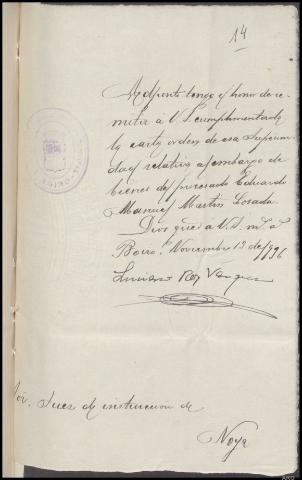 14
Adjunto tengo el honor de re-
mitir a V.S. cumplimentada
la carta orden de esa Superiori-
dad relativa al embargo de
bienes del procesado Eduardo
Manuel Martin Losada.
Dios gue a V.S. m. a.
Boiro Noviembre 13 de 1896
Luciano Roo Vazquez
Sor. Juez de instruccion de
Noya